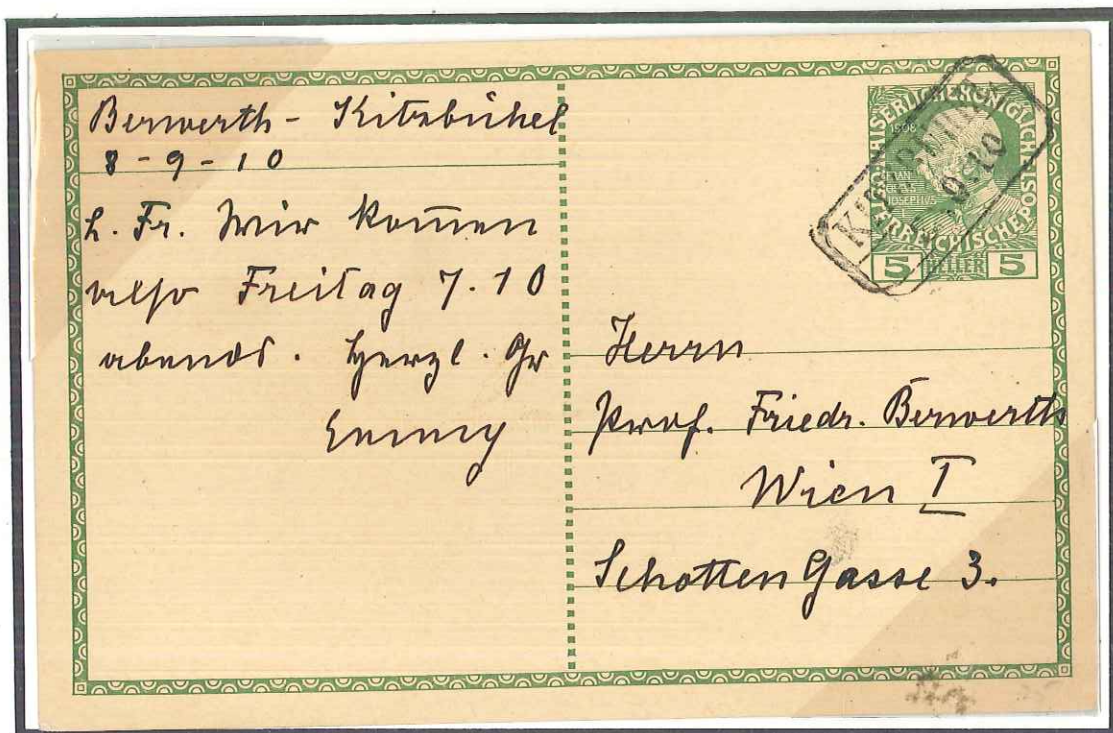 Berwerth - Kitzbühel
8-9-10
L. Fr. Wir kom̄en
also Freitag 7.10
abends. Herzl. Gr
Emmy
KAISERLICHEKÖNIGLICHE
ÖSTERREICHISCHEPOST
1908
5 HELLER 5
9 10
Herrn
Prof. Friedr. Berwerth
Wien I
Schotten Gasse 3.